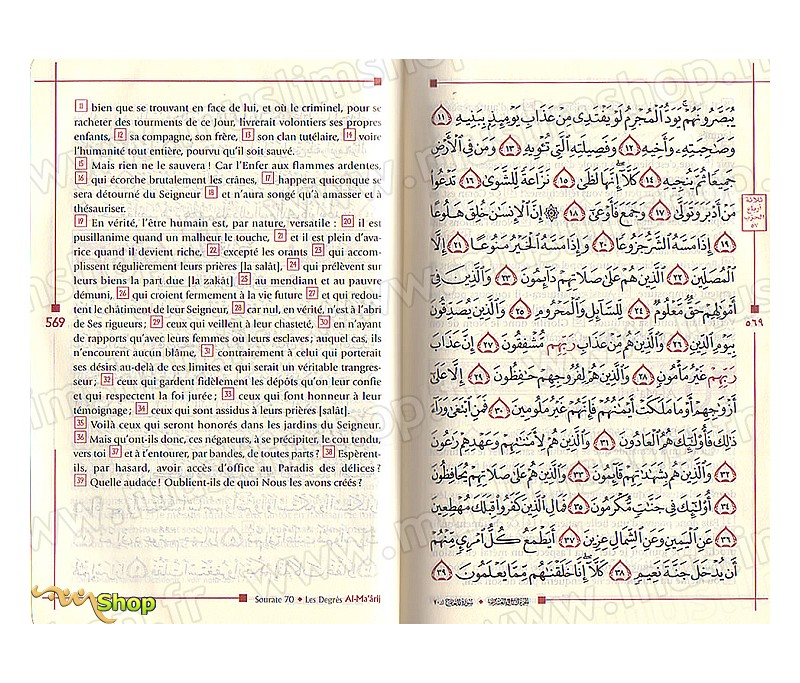 11 bien que se trouvant en face de lui, et où le criminel, pour se
racheter des tourments de ce Jour, livrerait volontiers ses propres
enfants, 12 sa compagne, son frère, 13 son clan tutélaire, 14 voire
l'humanité tout entière, pourvu qu'il soit sauvé.
15 Mais rien ne le sauvera ! Car l'Enfer aux flammes ardentes,
16 qui écorche brutalement les crânes, 17 happera quiconque se
sera détourné du Seigneur 18 et n'aura songé qu'à amasser et à
thésauriser.
19 En vérité, l'être humain est, par nature, versatile : 20 il est
pusillanime quand un malheur le touche, 21 et il est plein d'ava-
rice quand il devient riche, 22 excepté les orants 23 qui accom-
plissent régulièrement leurs prières [la salât], 24 qui prélèvent sur
leurs biens la part due [la zakât] 25 au mendiant et au pauvre
démuni, 26 qui croient fermement à la vie future 27 et qui redou-
tent le châtiment de leur Seigneur, 28 car nul, en vérité, n'est à l'abri
de Ses rigueurs ; 29 ceux qui veillent à leur chasteté, 30 en n'ayant
de rapports qu'avec leurs femmes ou leurs esclaves ; auquel cas, ils
n'encourent aucun blâme, 31 contrairement à celui qui porterait
ses désirs au-delà de ces limites et qui serait un véritable transgres-
seur ; 32 ceux qui gardent fidèlement les dépôts qu'on leur confie
et qui respectent la foi jurée ; 33 ceux qui font honneur à leur
témoignage ; 34 ceux qui sont assidus à leurs prières [salât].
35 Voilà ceux qui seront honorés dans les jardins du Seigneur.
36 Mais qu'ont-ils donc, ces négateurs, à se précipiter, le cou tendu,
vers toi 37 et à t'entourer, par bandes, de toutes parts ? 38 Espèrent-
ils, par hasard, avoir accès d'office au Paradis des délices ?
39 Quelle audace ! Oublient-ils de quoi Nous les avons créés ?
569
Sourate 70 ◆ Les Degrés Al-Ma'ârij
Shop
يُبَصَّرُونَهُمْ يَوَدُّ ٱلْمُجْرِمُ لَوْ يَفْتَدِى مِنْ عَذَابِ يَوْمِئِذٍۭ بِبَنِيهِ ١١
وَصَٰحِبَتِهِۦ وَأَخِيهِ ١٢ وَفَصِيلَتِهِ ٱلَّتِى تُـْٔوِيهِ ١٣ وَمَن فِى ٱلْأَرْضِ
جَمِيعًا ثُمَّ يُنجِيهِ ١٤ كَلَّآ إِنَّهَا لَظَىٰ ١٥ نَزَّاعَةً لِّلشَّوَىٰ ١٦ تَدْعُوا۟
مَنْ أَدْبَرَ وَتَوَلَّىٰ ١٧ وَجَمَعَ فَأَوْعَىٰٓ ١٨ ۞ إِنَّ ٱلْإِنسَٰنَ خُلِقَ هَلُوعًا
١٩ إِذَا مَسَّهُ ٱلشَّرُّ جَزُوعًا ٢٠ وَإِذَا مَسَّهُ ٱلْخَيْرُ مَنُوعًا ٢١ إِلَّا
ٱلْمُصَلِّينَ ٢٢ ٱلَّذِينَ هُمْ عَلَىٰ صَلَاتِهِمْ دَآئِمُونَ ٢٣ وَٱلَّذِينَ فِىٓ
أَمْوَٰلِهِمْ حَقٌّ مَّعْلُومٌ ٢٤ لِّلسَّآئِلِ وَٱلْمَحْرُومِ ٢٥ وَٱلَّذِينَ يُصَدِّقُونَ
بِيَوْمِ ٱلدِّينِ ٢٦ وَٱلَّذِينَ هُم مِّنْ عَذَابِ رَبِّهِم مُّشْفِقُونَ ٢٧ إِنَّ عَذَابَ
رَبِّهِمْ غَيْرُ مَأْمُونٍ ٢٨ وَٱلَّذِينَ هُمْ لِفُرُوجِهِمْ حَٰفِظُونَ ٢٩ إِلَّا عَلَىٰٓ
أَزْوَٰجِهِمْ أَوْ مَا مَلَكَتْ أَيْمَٰنُهُمْ فَإِنَّهُمْ غَيْرُ مَلُومِينَ ٣٠ فَمَنِ ٱبْتَغَىٰ وَرَآءَ
ذَٰلِكَ فَأُو۟لَٰٓئِكَ هُمُ ٱلْعَادُونَ ٣١ وَٱلَّذِينَ هُمْ لِأَمَٰنَٰتِهِمْ وَعَهْدِهِمْ رَٰعُونَ
٣٢ وَٱلَّذِينَ هُم بِشَهَٰدَٰتِهِمْ قَآئِمُونَ ٣٣ وَٱلَّذِينَ هُمْ عَلَىٰ صَلَاتِهِمْ يُحَافِظُونَ
٣٤ أُو۟لَٰٓئِكَ فِى جَنَّٰتٍ مُّكْرَمُونَ ٣٥ فَمَالِ ٱلَّذِينَ كَفَرُوا۟ قِبَلَكَ مُهْطِعِينَ
٣٦ عَنِ ٱلْيَمِينِ وَعَنِ ٱلشِّمَالِ عِزِينَ ٣٧ أَيَطْمَعُ كُلُّ ٱمْرِئٍ مِّنْهُمْ
أَن يُدْخَلَ جَنَّةَ نَعِيمٍ ٣٨ كَلَّآ إِنَّا خَلَقْنَٰهُم مِّمَّا يَعْلَمُونَ ٣٩
ثلاثة
أرباع
الحزب
٥٧
٥٦٩